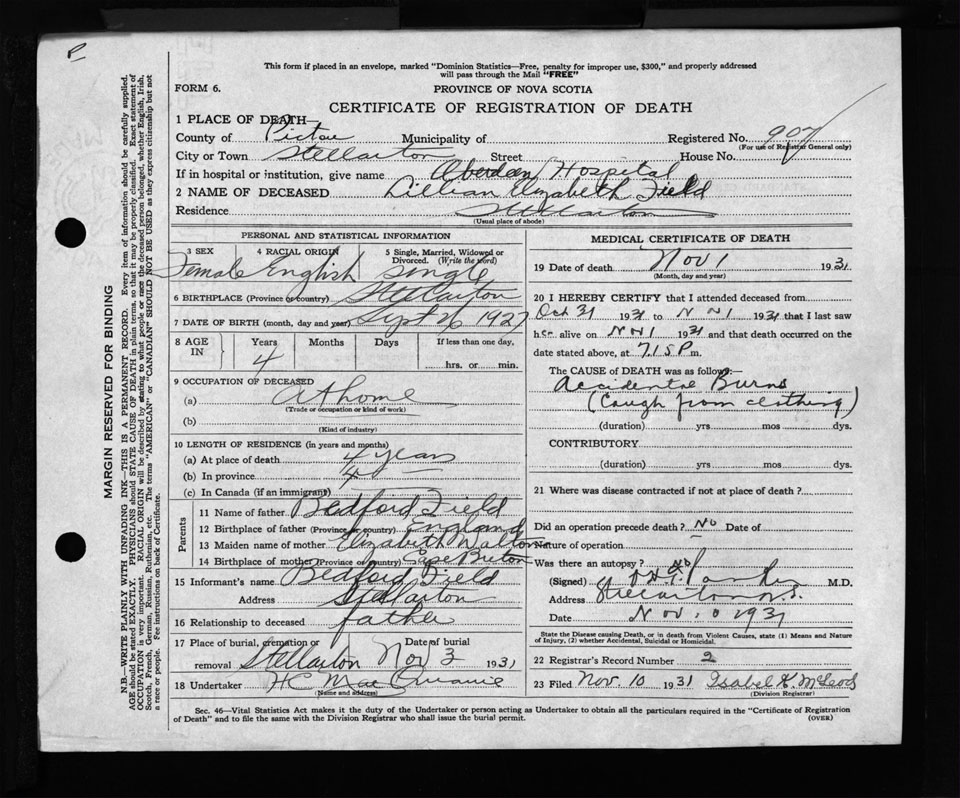 P
This form if placed in an envelope, marked "Dominion Statistics—Free, penalty for improper use, $300," and properly addressed
will pass through the Mail "FREE"
FORM 6.
PROVINCE OF NOVA SCOTIA
CERTIFICATE OF REGISTRATION OF DEATH
1 PLACE OF DEATH—
County of Pictou Municipality of Registered No. 907
(For use of Registrar General only)
City or Town Stellarton Street House No.
If in hospital or institution, give name Aberdeen Hospital
2 NAME OF DECEASED Lillian Elizabeth Field
Residence Stellarton
(Usual place of abode)
PERSONAL AND STATISTICAL INFORMATION
3 SEX 4 RACIAL ORIGIN 5 Single, Married, Widowed or
Divorced. (Write the word)
Female English single
6 BIRTHPLACE (Province or country) Stellarton
7 DATE OF BIRTH (month, day and year) Sept 26 1927
8 AGE IN Years Months Days If less than one day,
4 hrs. or min.
9 OCCUPATION OF DECEASED
(a) At home
(Trade or occupation or kind of work)
(b)
(Kind of industry)
10 LENGTH OF RESIDENCE (in years and months)
(a) At place of death 4 years
(b) In province 4
(c) In Canada (if an immigrant)
Parents
11 Name of father Bedford Field
12 Birthplace of father (Province or country) England
13 Maiden name of mother Elizabeth Walton
14 Birthplace of mother (Province or country) Cape Breton
15 Informant's name Bedford Field
Address Stellarton
16 Relationship to deceased father
17 Place of burial, cremation or Date of burial
removal Stellarton Nov 3 1931
18 Undertaker H C Mac
(Name and address)
MEDICAL CERTIFICATE OF DEATH
19 Date of death Nov 1 1931
(Month, day and year)
20 I HEREBY CERTIFY that I attended deceased from
Oct 31 1931 to N N 1 1931 that I last saw
her alive on N N 1 1931 and that death occurred on the
date stated above, at 7.15 P m.
The CAUSE OF DEATH was as follows:—
Accidental Burns
(Caugh from clothing)
(duration) yrs mos dys.
CONTRIBUTORY
(duration) yrs mos dys.
21 Where was disease contracted if not at place of death?
Did an operation precede death? No Date of
Nature of operation
Was there an autopsy? no
(Signed) M.D.
Address Stellarton N.S.
Date Nov. 10 1931
State the Disease causing Death, or in death from Violent Causes, state (1) Means and Nature
of Injury, (2) whether Accidental, Suicidal or Homicidal.
22 Registrar's Record Number 2
23 Filed Nov. 10 1931 Isabel K. McLeod
(Division Registrar)
Sec. 46—Vital Statistics Act makes it the duty of the Undertaker or person acting as Undertaker to obtain all the particulars required in the "Certificate of Registration
of Death" and to file the same with the Division Registrar who shall issue the burial permit.
(OVER)
MARGIN RESERVED FOR BINDING
N.B.—WRITE PLAINLY WITH UNFADING INK—THIS IS A PERMANENT RECORD. Every item of information should be carefully supplied.
AGE should be stated EXACTLY. PHYSICIANS should STATE CAUSE OF DEATH in plain terms, so that it may be properly classified. Exact statement of
OCCUPATION is very important. RACIAL ORIGIN will be described by stating to what people or race the deceased person belonged, whether English, Irish,
Scotch, French, German, Russian, Ruthenian, etc. The terms "AMERICAN" or "CANADIAN" SHOULD NOT BE USED as they express citizenship but not
a race or people. Fee instructions on back of Certificate.